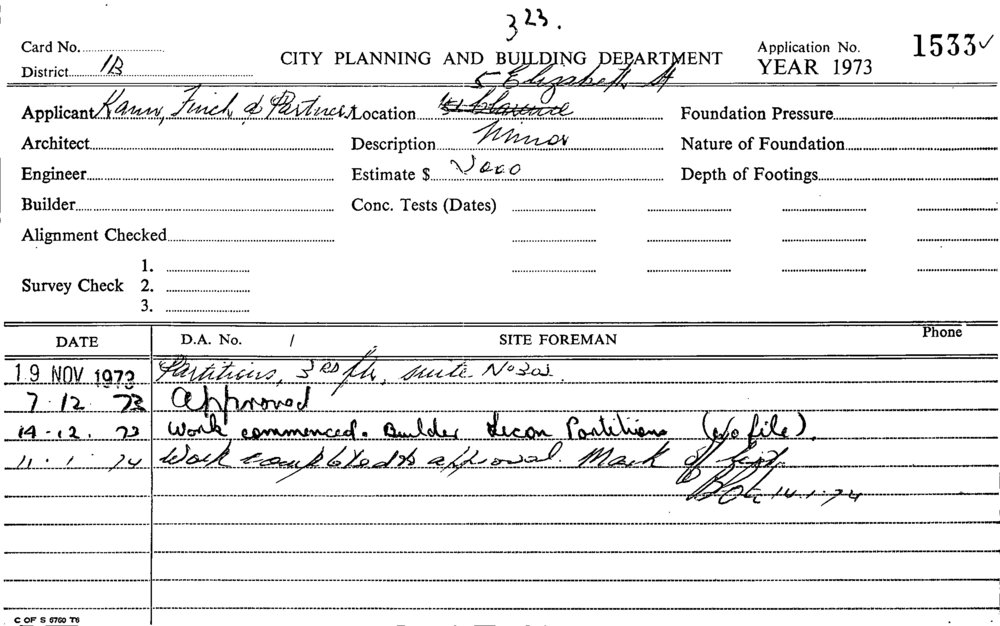 323.
Card No.
District 1B
CITY PLANNING AND BUILDING DEPARTMENT
Application No. 1533 ✓
YEAR 1973
5 Elizabeth St
Applicant Kann, Finch & Partners Location Clarence Foundation Pressure
Architect Description Minor Nature of Foundation
Engineer Estimate $ Depth of Footings
Builder Conc. Tests (Dates)
Alignment Checked
1.
Survey Check 2.
3.
DATE D.A. No. / SITE FOREMAN Phone
19 NOV 1973 Partitions, 3RD flr, suite No 302.
7.12.73 Approved
14-12.73 Work commenced. Builder Lecon Partitions (No file).
11.1.74 Work completed to approval. Mark off list.
14.1.74
C OF S 6760 T6